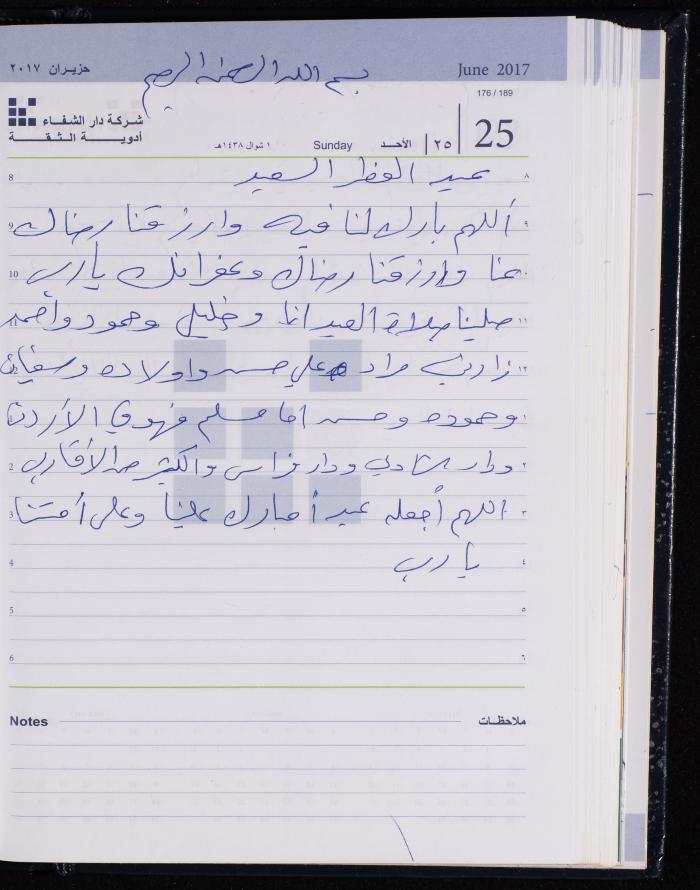 حزيران ٢٠١٧
بسم الله الرحمن الرحيم
June 2017
176 / 189
شركة دار الشفاء
أدوية الثقة
١ شوال ١٤٣٨هـ
Sunday
الأحد
٢٥
25
8 عيد الفطر السعيد ٨
9 أللهم بارك لنا فيه وارزقنا رضاك ٩
10 عنا وارزقنا رضاك وغفرانك يارب ١٠
11 صلينا صلاة العيد انا وخليل وحمود واحمد ١١
زارني مراد علي حسن واولاده وسفيان ١٢
وحموده وحسن اما مسلم فهو في الأردن ١
2 ودار شادي ودار فراس والكثير من الأقارب ٢
3 اللهم أجعله عيدأ مبارك علينا وعلى أمتنا ٣
4 يا رب ٤
5 ٥
6 ٦
Notes ملاحظات